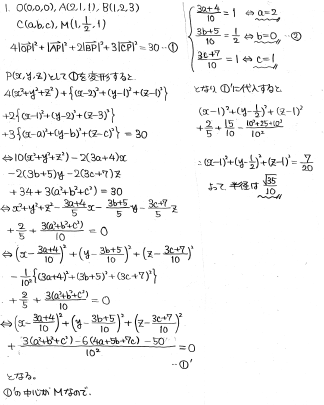 1. O(0,0,0), A(2,1,1), B(1,2,3)
C(a,b,c), M(1,1/2,1)
4|OP|²+|AP|²+2|BP|²+3|CP|²=30 …①
P(x,y,z)として①を変形すると
4(x²+y²+z²)+{(x-2)²+(y-1)²+(z-1)²}
+2{(x-1)²+(y-2)²+(z-3)²}
+3{(x-a)²+(y-b)²+(z-c)²} = 30
⇔10(x²+y²+z²)-2(3a+4)x
-2(3b+5)y-2(3c+7)z
+34+3(a²+b²+c²)=30
⇔x²+y²+z²-(3a+4)/5 x-(3b+5)/5 y-(3c+7)/5 z
+2/5+3(a²+b²+c²)/10=0
⇔(x-(3a+4)/10)²+(y-(3b+5)/10)²+(z-(3c+7)/10)²
-1/10²{(3a+4)²+(3b+5)²+(3c+7)²}
+2/5+3(a²+b²+c²)/10=0
⇔(x-(3a+4)/10)²+(y-(3b+5)/10)²+(z-(3c+7)/10)²
+(3(a²+b²+c²)-6(4a+5b+7c)-50)/10²=0
…①'
となる。
①'の中心がMなので、
(3a+4)/10=1⇔a=2
(3b+5)/10=1/2⇔b=0 …②
(3c+7)/10=1⇔c=1
となり①'に代入すると
(x-1)²+(y-1/2)²+(z-1)²
+2/5+15/10-(10²+25+10²)/10²
∴(x-1)²+(y-1/2)²+(z-1)²=7/20
よって半径は√35/10